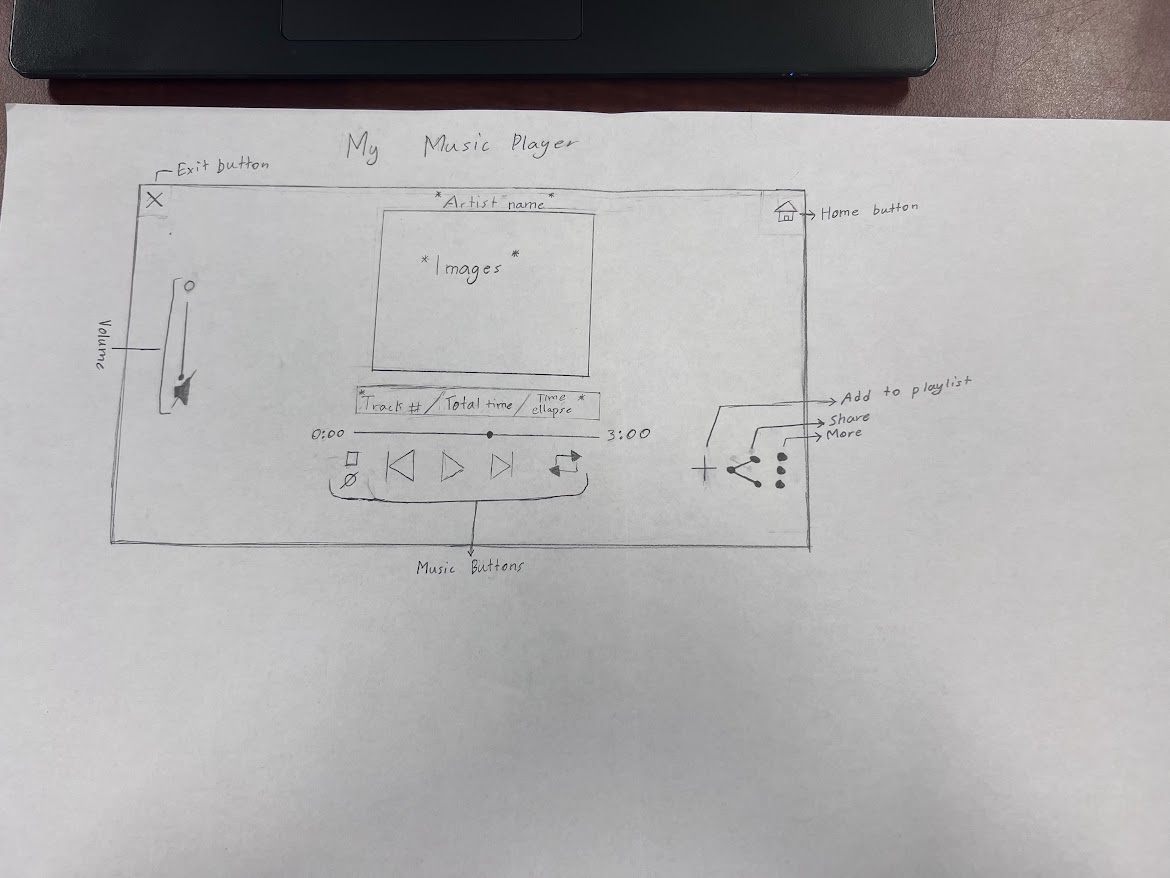 My Music Player
Exit button
*Artist name*
Home button
*Images*
Volume
*Track # / Total time / Time ellapse*
0:00
3:00
Add to playlist
Share
More
Music Buttons